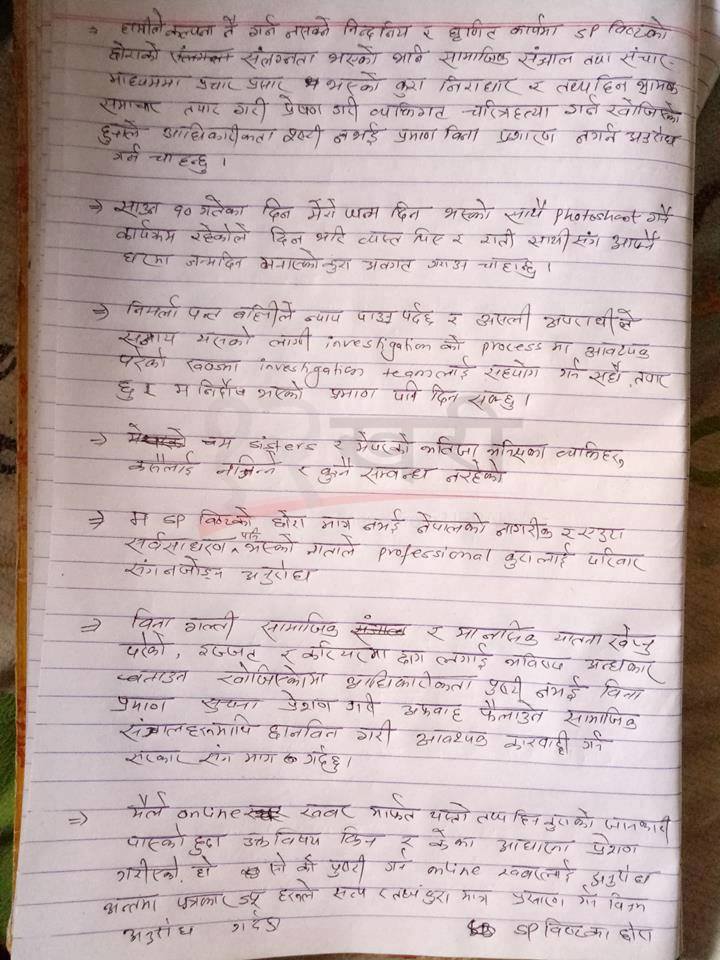 ⇒ हामीले कल्पना नै गर्न नसक्ने निन्दनिय र घृणित कार्यमा SP विष्टको
छोराको संलग्नता भएको भनि सामाजिक संजाल तथा संचार-
माध्यममा प्रचार प्रसार भएको कुरा निराधार र तथ्यहिन भ्रामक
समाचार तयार गरी प्रेषण गरी व्यक्तिगत चरित्रहत्या गर्न खोजिएको
हुनाले आधिकारीकता पुष्टी नभई प्रमाण विना प्रशारण नगर्न अनुरोध
गर्न चाहन्छु ।
⇒ साउन १० गतेका दिन मेरो जन्म दिन भएको साथै photoshoot गर्ने
कार्यक्रम रहेकोले दिन भरि व्यस्त थिए र राती साथी संग आफ्नै
घरमा जन्मदिन मनाएको कुरा अवगत गराउन चाहान्छु ।
⇒ निर्मला पन्त बहिनीले न्याय पाउनु पर्दछ र असली अपराधीले
सजाय यसको लागी investigation को process मा आवश्यक
परेको खण्डमा investigation team लाई सहयोग गर्न सधै तयार
छु र म निर्दोष भएको प्रमाण पनि दिन सक्छु ।
⇒ म sisters र मेयरको भतिजा भनिएका व्यक्तिहरु
कसैलाई नचिन्ने र कुनै सम्बन्ध नरहेको
⇒ म SP विष्टको छोरा मात्र नभई नेपालको नागरीक र एउटा
सर्वसाधरण पनि भएको नाताले professional कुरालाई परिवार
संग नजोड्न अनुरोध
⇒ विना गल्ती सामाजिक र मानसिक यातना खेप्नु
परेको, इज्जत र करियरमा दाग लगाई भविष्य अन्धकार
बनाउन खोजिएकोमा आधिकारीकता पुष्टी नभई विना
प्रमाण सुचना प्रेशण गर्ने अफवाह फैलाउने सामाजिक
संजालहरुमाथि छानविन गरी आवश्यक कारवाही गर्न
सरकार संग माग गर्दछु ।
⇒ मैले online खवर मार्फत यस्तो तथ्यहिन कुराको जानकारी
पाएको हुदा उक्त विषय किन र के का आधारमा प्रेशण
गरीएको हो सो को पुष्टी गर्न online खवरलाई अनुरोध
अन्तमा पत्रकार हरुले सत्य र तथ्य कुरा मात्र प्रशारण गर्न विनम्र
अनुरोध गर्दछु SP विष्टका छोरा
खरी